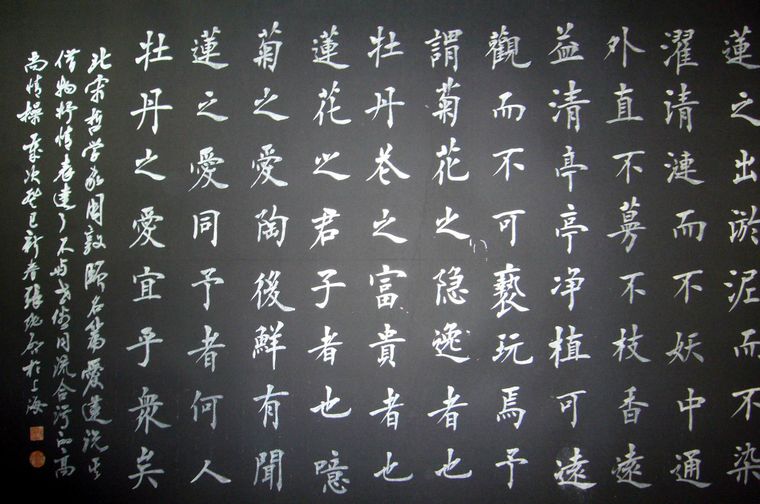 蓮之出淤泥而不染
濯清漣而不妖中通
外直不蔓不枝香遠
益清亭亭净植可遠
觀而不可褻玩焉予
謂菊花之隐逸者也
牡丹花之富貴者也
蓮花之君子者也噫
菊之愛陶後鮮有聞
蓮之愛同予者何人
牡丹之愛宜乎衆矣
北宋哲学家周敦颐名篇愛蓮说
借物抒情表達了不与世俗同流合污的高
尚情操歲次癸巳新春張於上海